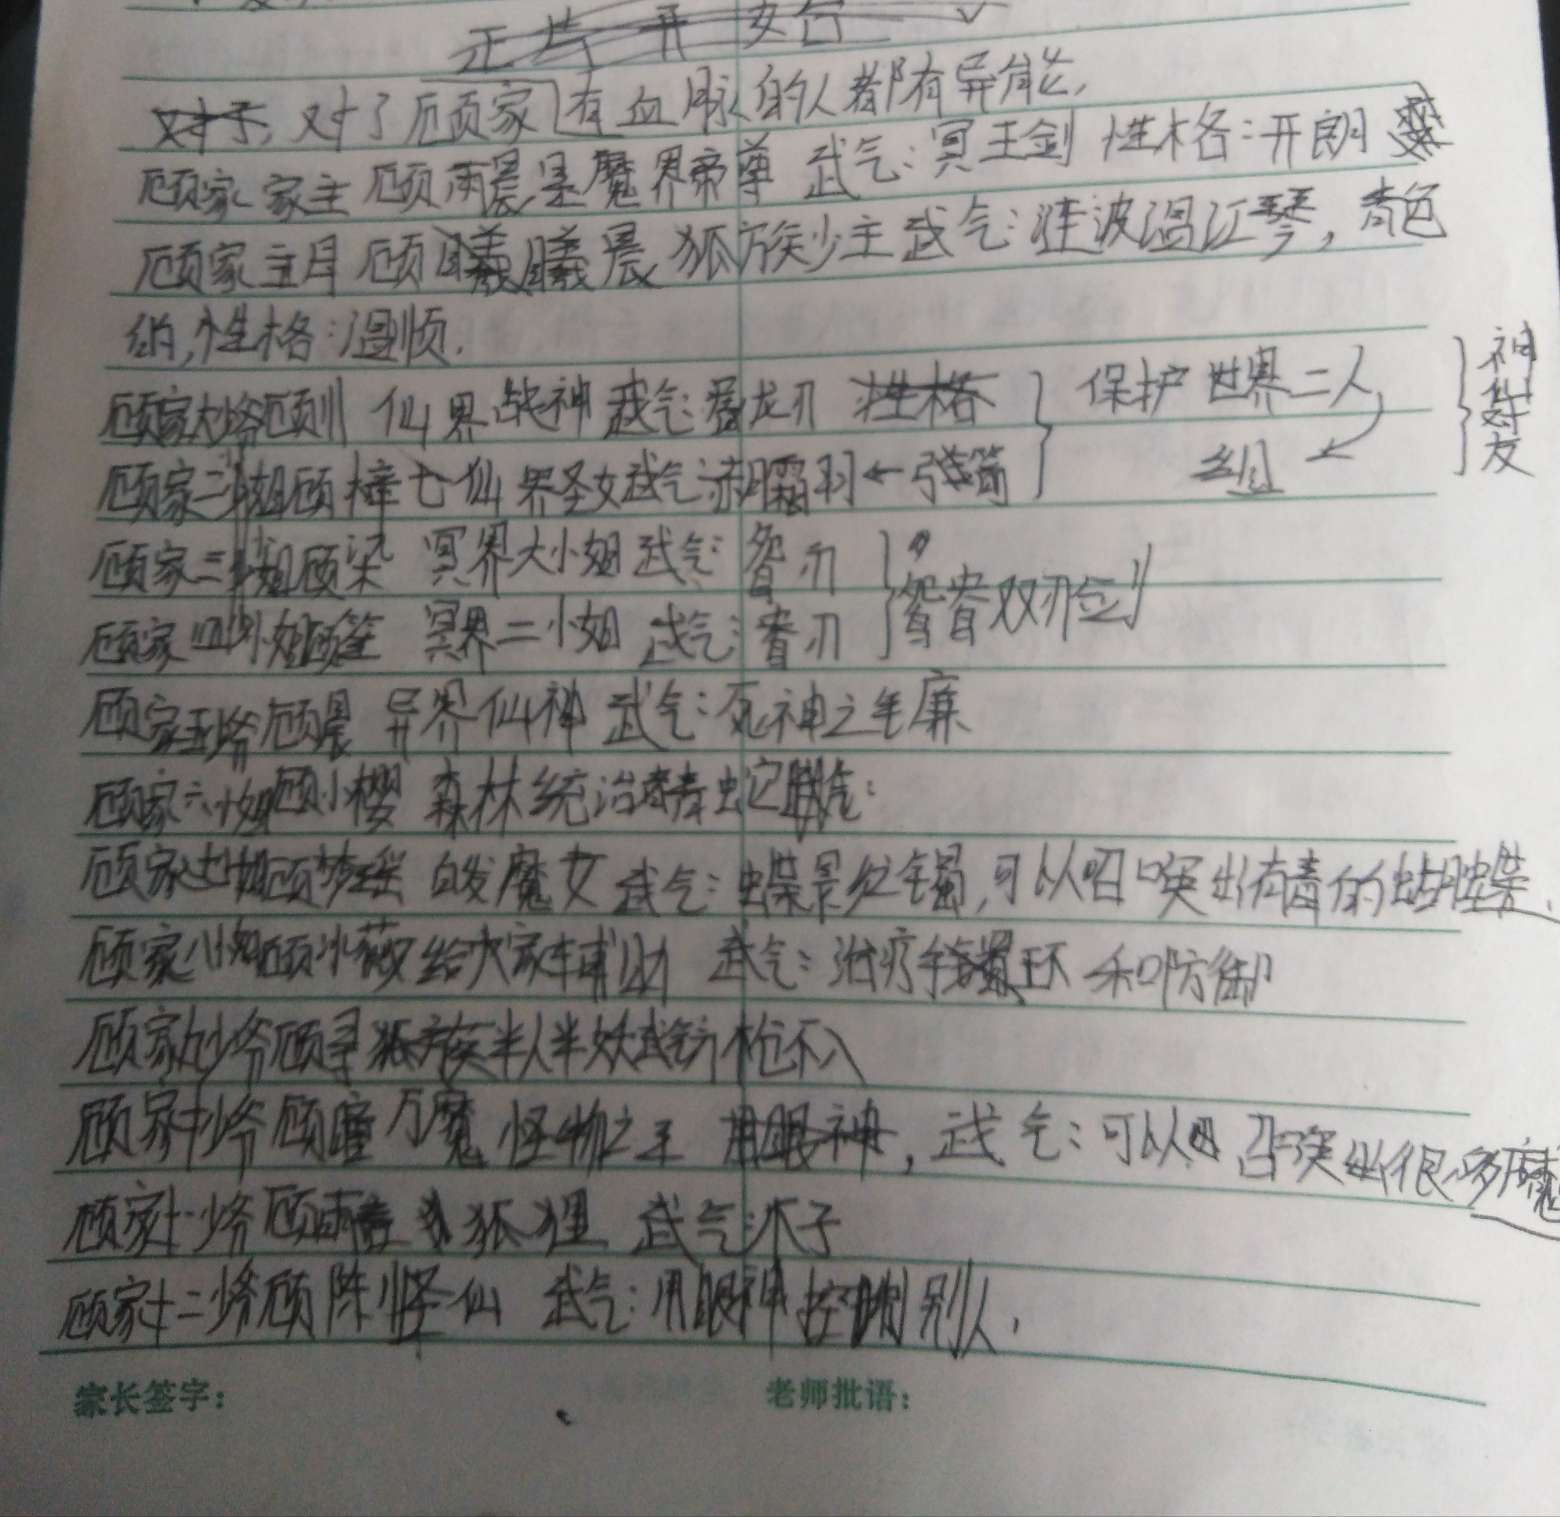 正片开始
对了,对了顾家有血脉的人都有异能,
顾家家主 顾雨晨是魔界帝尊 武气:冥王剑 性格:开朗
顾家主母 顾曦晨 狐族少主 武气:波温江琴,青色
的,性格:温顺.
顾家大少爷顾训 仙界战神 武气:龙刃 性格 保护世界二人
组 神仙好友
顾家二小姐顾樟七仙界圣女武气:赤霜羽←弦筒
顾家三小姐顾染 冥界大小姐 武气:鸳刃 鸳鸯双刃
顾家四小姐顾笙 冥界二小姐 武气:鸯刃
顾家五少爷顾晨 异界仙神 武气:死神之镰
顾家六小姐顾小樱 森林统治者青蛇武气:
顾家七小姐顾梦瑶 白发魔女 武气:蝶镯,可以召唤出有毒的蝴蝶.
顾家八小姐顾小薇给大家辅助 武气:治疗手环和防御
顾家九少爷顾寻狐族半人半妖武气:枪不入
顾家十少爷顾瞳万魔怪物之王 用眼神,武气:可以召唤出很多魔
顾家十一少爷顾雨 狐狸 武气:木子
顾家十二少爷顾陈怪仙 武气:用眼神控制别人.
家长签字: 老师批语: